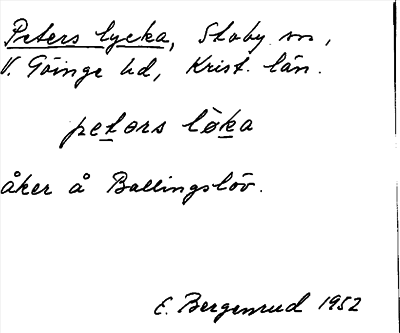 Peters lycka, Stoby sn,
V. Göinge hd, Krist. län.
petors löka
åker å Ballingslöv.
E. Bergenrud 1952